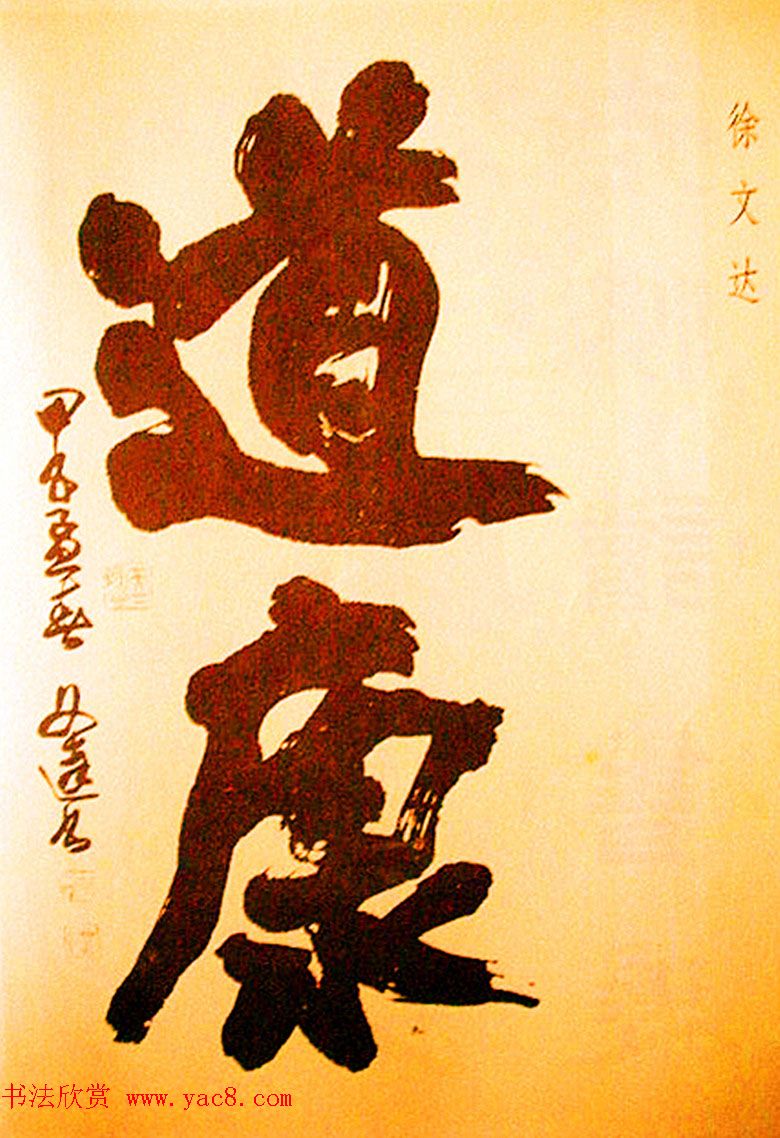 徐文达
道康
甲午孟春 文达书
书法欣赏 www.yac8.com